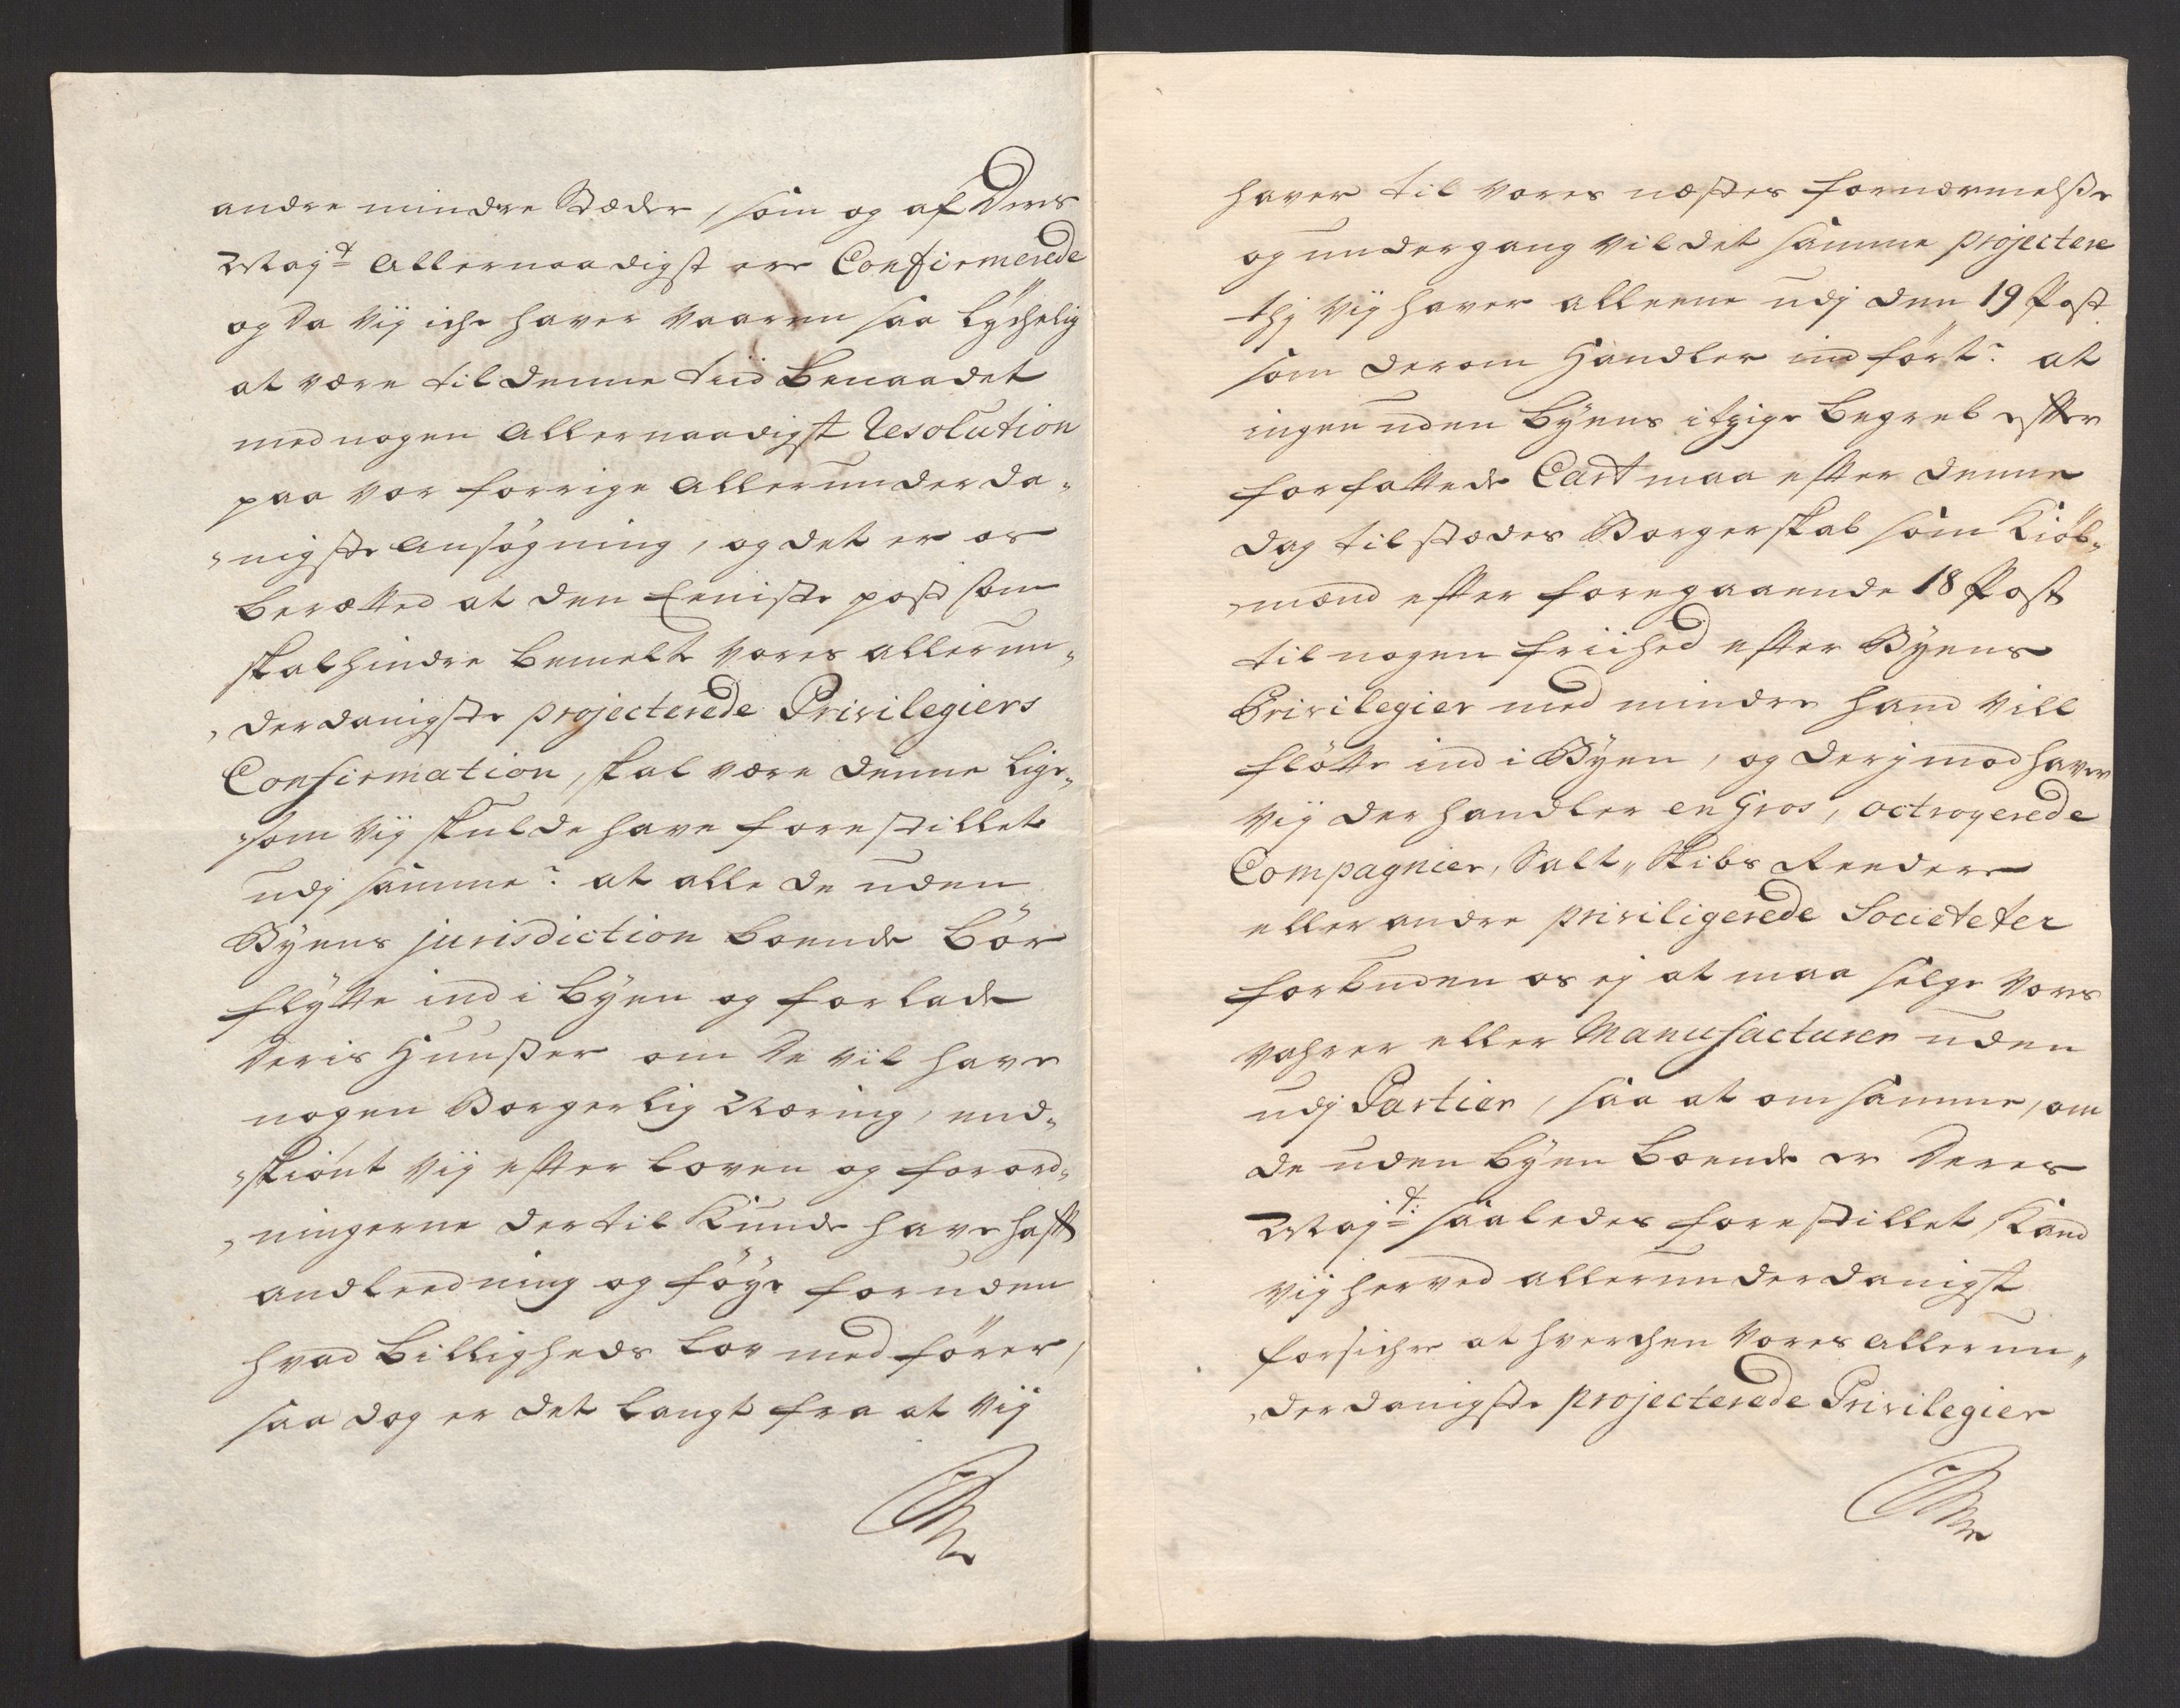 andre mindre Stæder, som og af Ders
Mayt Allernaadigst ere Confirmerede
og da vij iche haver vaaren saa lychelig
at være til denne tiid benaadet
med nogen Allernaadigst Resolution
paa vor forrige Allerunderda„
„nigste Ansøgning, og det er os
berætted at den Eeniste post som
skal hindre bemelte vores allerun„
„derdanigste projecterede Privilegiers
Confirmation, skal være denne lige„
„som vij skulde have forestillet
udj samme: at alle de uden
Byens jurisdiction boende bör
flytte ind i byen og forlade
deris Huuser om de vil have
nogen Borgerlig Næring, end„
„skiönt vij efter loven og forord„
„ningerne der til kunde have hafft
andleedning og föye foruden
hvad billigheds lov med förer,
saa dog er det langt fra at vij
haver til vores næstes fornærmelse
og undergang vil det samme projectere
thj vij haver alleene udj den 19 Post
som derom handler indfört: at
ingen uden byens itzige begreb efter
forfattede Cart maa efter denne
dag tilstædes Borgerskab som Kiöb„
„mænd efter foregaaende 18 Post
til nogen friihed efter Byens
Privilegier med mindre hand vill
flötte ind i Byen, og derjmod haver
vij der handler en Gros, octroyerede
Compagnier, Salt„ Skibs Reedere
eller andre priviligerede Societeter
forbuden os ej at maa selge vores
vahrer eller Manufacturer uden
udj Partier, saa at om samme, om
de uden byen boende er Deres
Mayt: saaledes forestillet, kand
vij herved allerunderdanigst
forsichre at hverchen vores allerun„
„derdanigste projecterede Privilegier